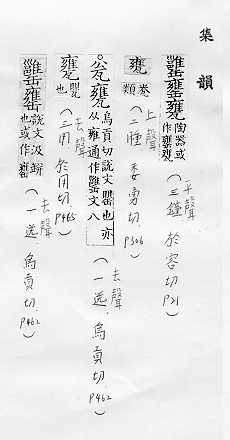 集韻
甕 陶器或作 (平聲 三鍾 於容切 P21)
甕 類 (上聲 二腫 委勇切 P306)
瓮甕 烏貢切說文罌也亦从雍通作罋文八 (去聲 一送 烏貢切 P462)
甕 罌也 (去聲 三用 於用切 P465)
罋 說文汲缾也或作 (去聲 一送 烏貢切 P462)